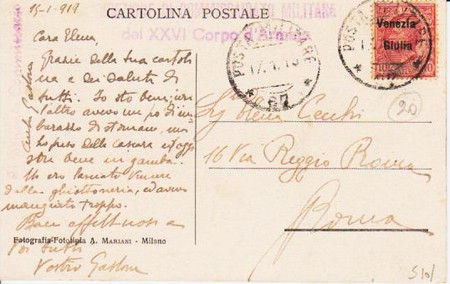 15-1-919
CARTOLINA POSTALE
COMMISSARIATO MILITARE
del XXVI Corpo d'Armata
POSTA MILITARE
17.1.19
67
POSTA MILITARE
Venezia
Giulia
Cara Elena,
Grazie della sua cartolina
e dei saluti di
tutti. Io sto benissimo
l'altro avevo un po' di
barazzo di stomaco, ma
ho preso della cascara ed oggi
sto bene in gamba.
Mi ero lasciato vincere
dalla ghiottoneria, ed avevo
mangiato troppo.
Baci affettuosi a
tutti
Vostro Gastone
20
16 Via Reggio Roma
Roma
Fotografia-Fototipia A. MARIANI - Milano